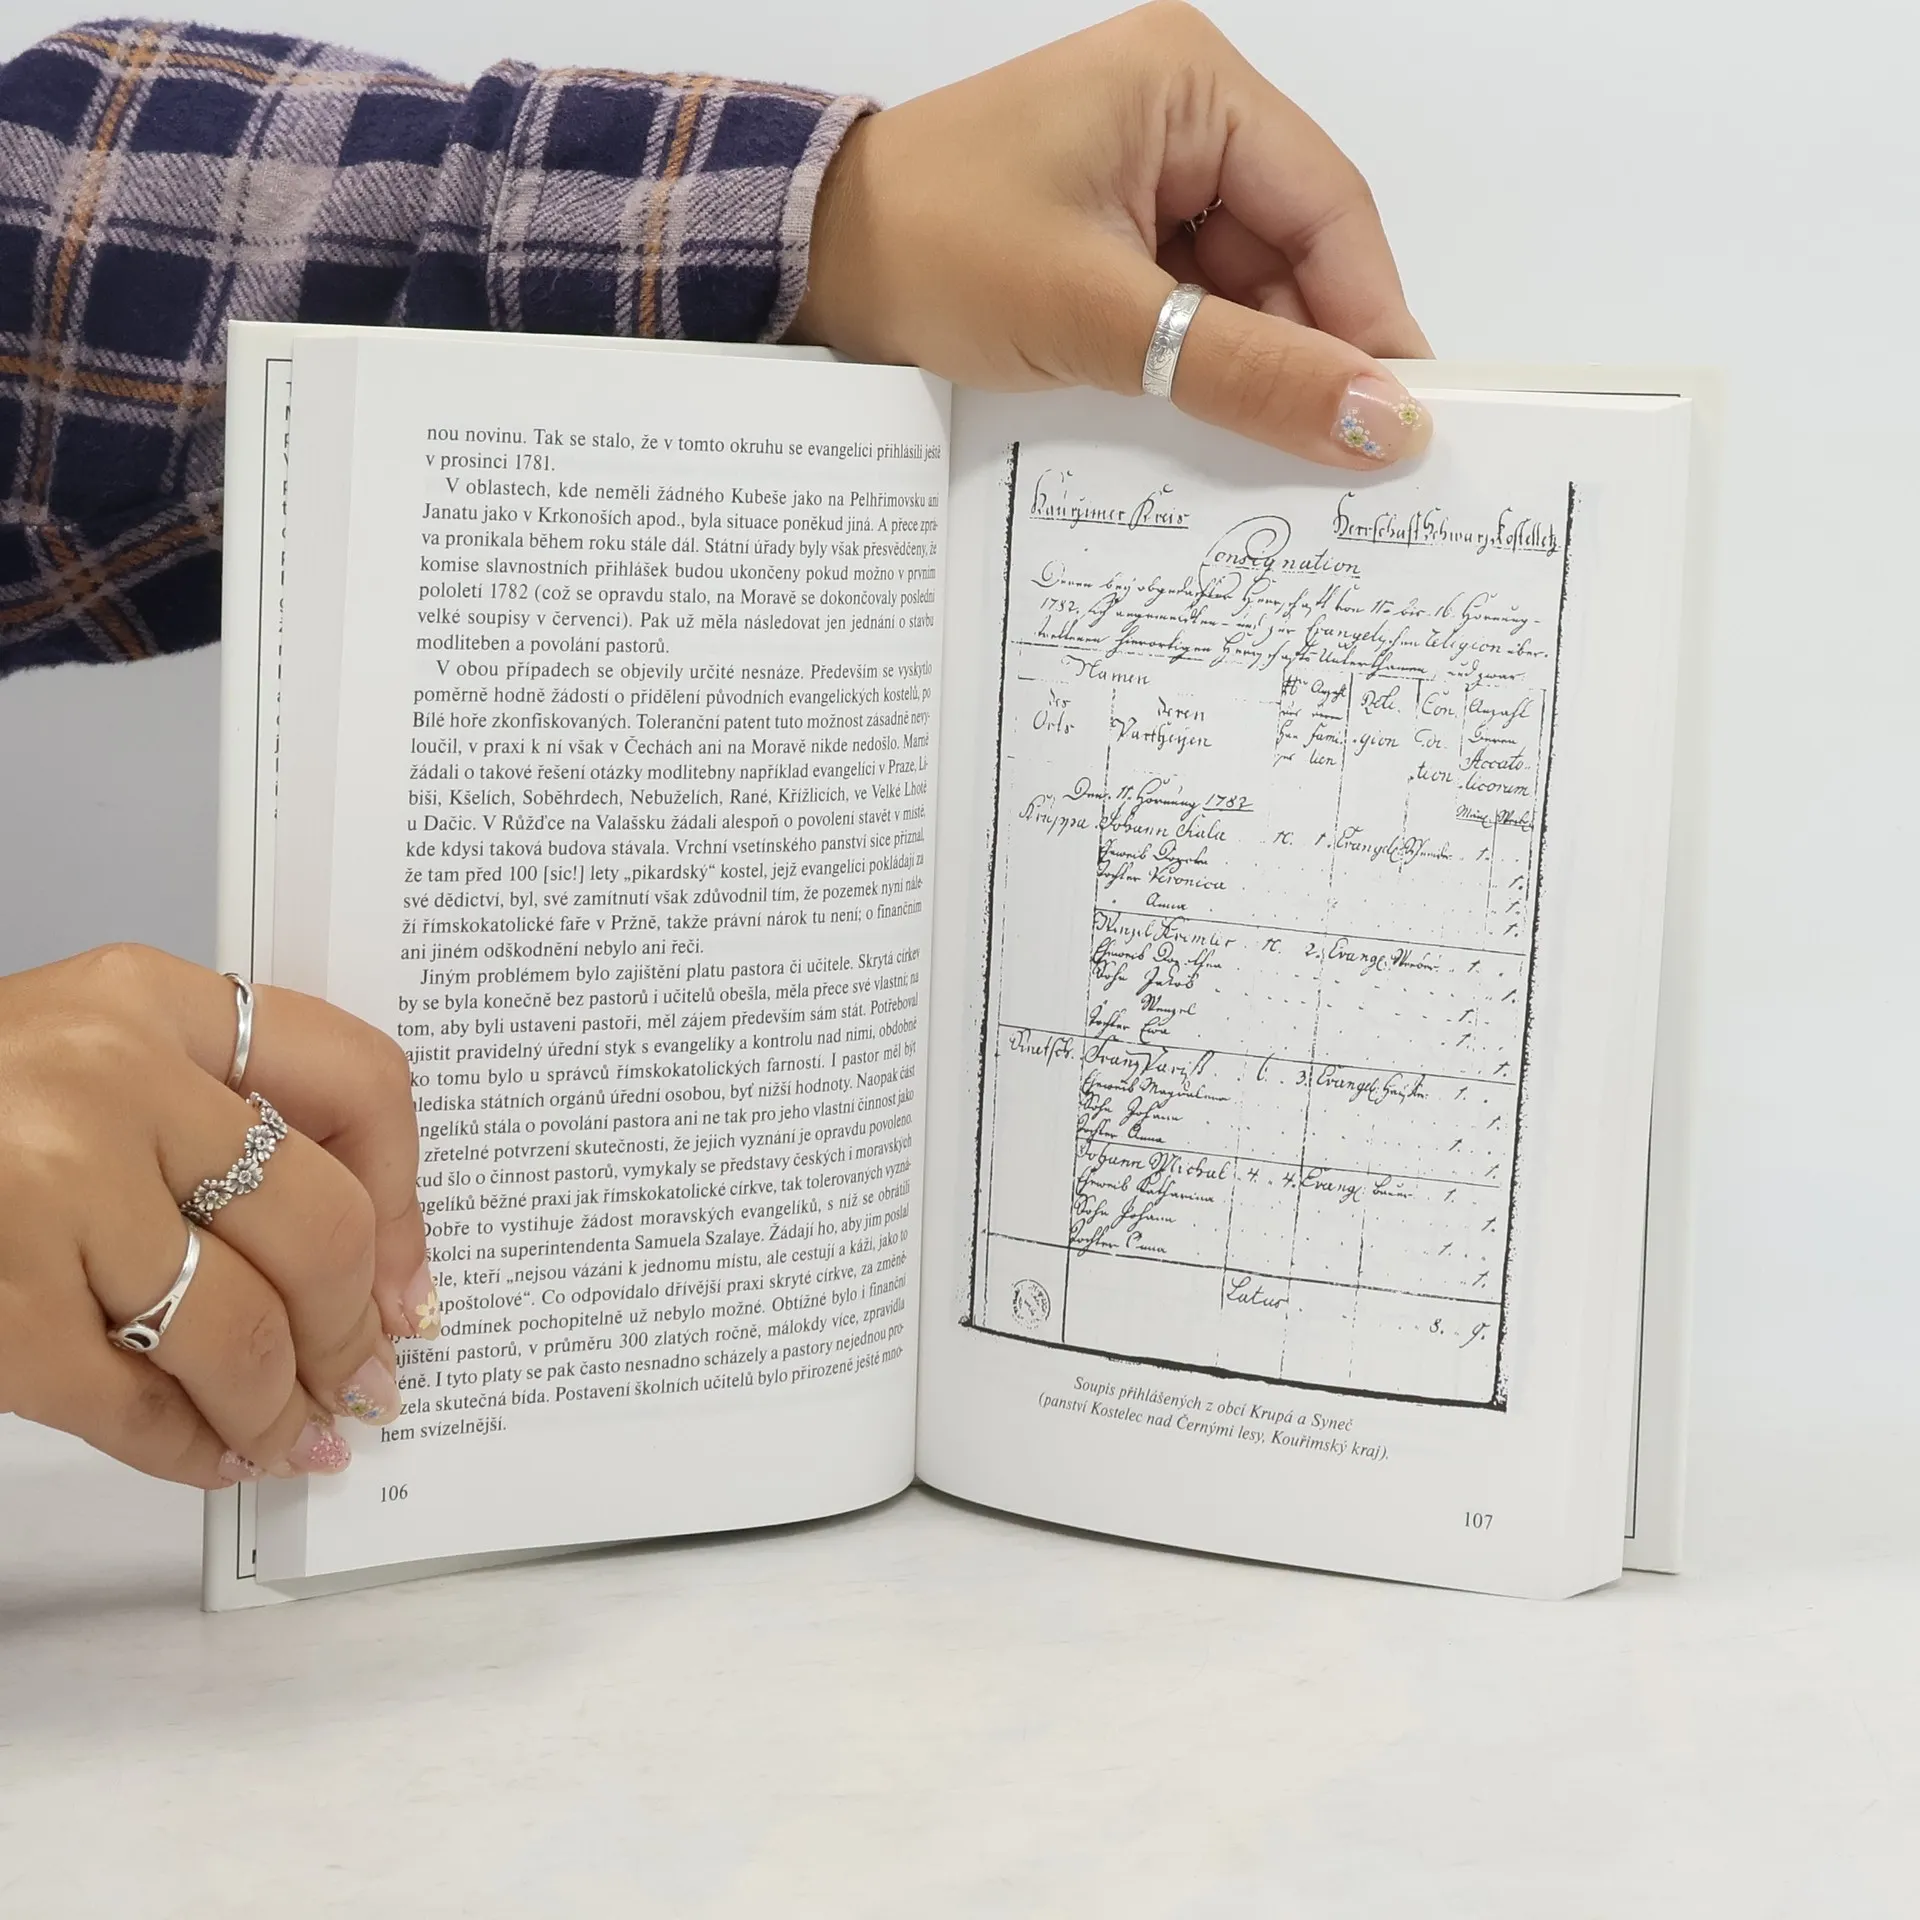 nou novinu. Tak se stalo, že v tomto okruhu se evangelíci přihlásili ještě
v prosinci 1781.
V oblastech, kde neměli žádného Kubeše jako na Pelhřimovsku ani
Janatu jako v Krkonoších apod., byla situace poněkud jiná. A přece zprá-
va pronikala během roku stále dál. Státní úřady byly však přesvědčeny, že
komise slavnostních přihlášek budou ukončeny pokud možno v prvním
pololetí 1782 (což se opravdu stalo, na Moravě se dokončovaly poslední
velké soupisy v červenci). Pak už měla následovat jen jednání o stavbu
modliteben a povolání pastorů.
V obou případech se objevily určité nesnáze. Především se vyskytlo
poměrně hodně žádostí o přidělení původních evangelických kostelů, po
Bílé hoře zkonfiskovaných. Toleranční patent tuto možnost zásadně nevy-
loučil, v praxi k ní však v Čechách ani na Moravě nikde nedošlo. Marně
žádali o takové řešení otázky modlitebny například evangelíci v Praze, Li-
biši, Kšelích, Soběhrdech, Nebuželích, Rané, Křížlicích, ve Velké Lhotě
u Dačic. V Růžďce na Valašsku žádali alespoň o povolení stavět v místě,
kde kdysi taková budova stávala. Vrchní vsetínského panství sice přiznal,
že tam před 100 [sic!] lety „pikardský“ kostel, jejž evangelíci pokládají za
své dědictví, byl, své zamítnutí však zdůvodnil tím, že pozemek nyní nále-
ží římskokatolické faře v Pržně, takže právní nárok tu není; o finančním
ani jiném odškodnění nebylo ani řeči.
Jiným problémem bylo zajištění platu pastora či učitele. Skrytá církev
by se byla konečně bez pastorů i učitelů obešla, měla přece své vlastní; na
tom, aby byli ustaveni pastoři, měl zájem především sám stát. Potřeboval
ajistit pravidelný úřední styk s evangelíky a kontrolu nad nimi, obdobně
ko tomu bylo u správců římskokatolických farností. I pastor měl být
hlediska státních orgánů úřední osobou, byť nižší hodnoty. Naopak část
ngelíků stála o povolání pastora ani ne tak pro jeho vlastní činnost jako
zřetelné potvrzení skutečnosti, že jejich vyznání je opravdu povoleno.
kud šlo o činnost pastorů, vymykaly se představy českých i moravských
ngelíků běžné praxi jak římskokatolické církve, tak tolerovaných vyzná-
Dobře to vystihuje žádost moravských evangelíků, s níž se obrátili
školci na superintendenta Samuela Szalaye. Žádají ho, aby jim poslal
ele, kteří „nejsou vázáni k jednomu místu, ale cestují a káží, jako to
apoštolové“. Co odpovídalo dřívější praxi skryté církve, za změně-
odmínek pochopitelně už nebylo možné. Obtížné bylo i finanční
ajištění pastorů, v průměru 300 zlatých ročně, málokdy více, zpravidla
éně. I tyto platy se pak často nesnadno scházely a pastory nejednou pro-
zela skutečná bída. Postavení školních učitelů bylo přirozeně ještě mno-
hem svízelnější.
106
Kaurzimer Kreis
Herrschaft Schwarz Kostelletz
Consignation
Deren bey obgedachter Herrschaft von 11. bis 16. Hornung
1782. sich angemeldten und zur Evangelischen Religion über-
trettenen hierortigen Herrschafts Unterthanen, und zwar
Namen
des Orts
deren Partheyen
Reli-gion
Con-di-tion
Anzahl deren Accatolicorum
Den 11. Hornung 1782
Kruppa Johann Fiala 1. Evangel. 1.
Eheweib Dorothea 1.
Tochter Veronica 1.
Anna 1.
Wenzel 2. Evangel. 1.
Eheweib Dorothea 1.
Sohn Jakob 1.
Wenzel 1.
Tochter Eva 1.
Franz 3. Evangel. 1.
Eheweib Magdalena 1.
Sohn Johann 1.
Tochter Anna 1.
Johann Michal 4. 4. Evang. Bauer 1.
Eheweib Katharina 1.
Sohn Johann 1.
Tochter Anna 1.
Latus 8. 9.
Soupis přihlášených z obcí Krupá a Syneč
(panství Kostelec nad Černými lesy, Kouřimský kraj).
107